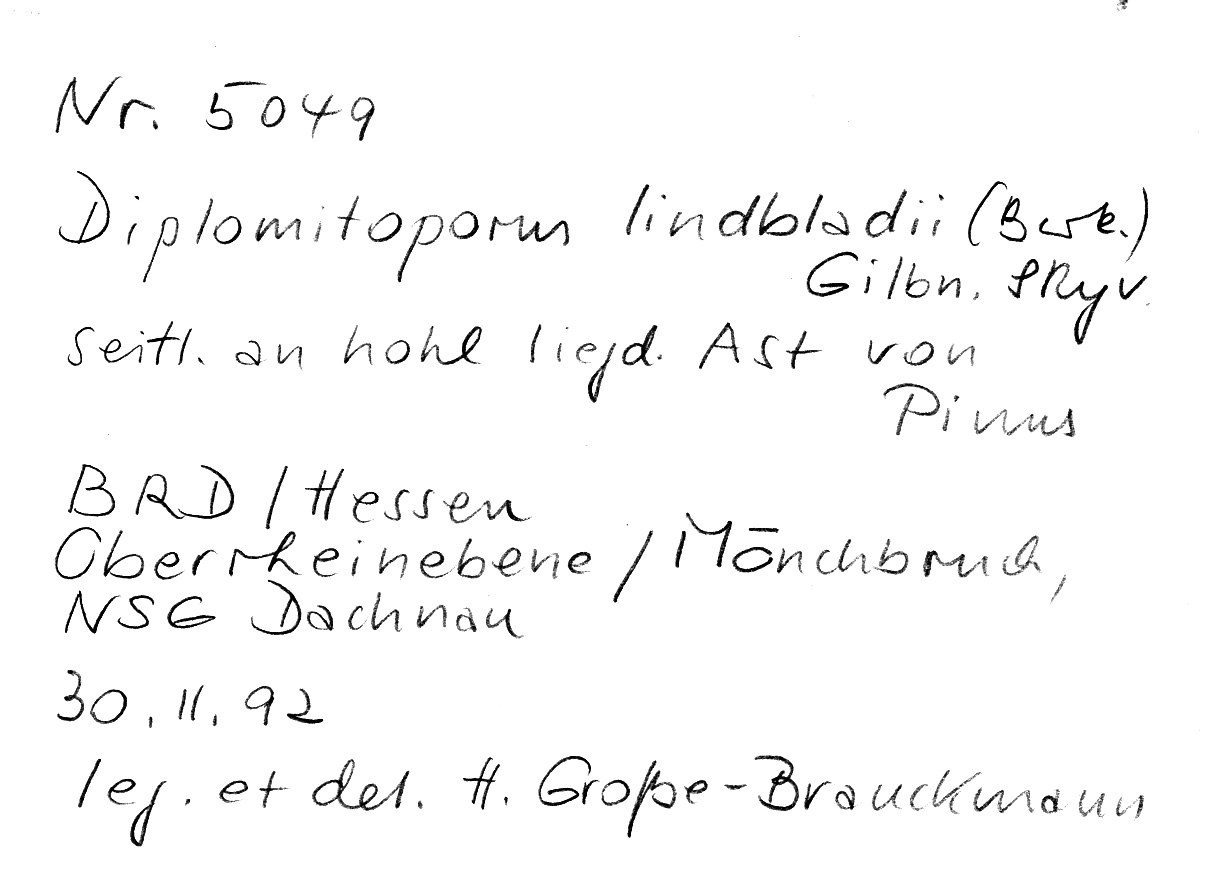 Nr. 5049
Diplomitoporus lindbladii (Berk.)
Gilbn. & Ryv.
seitl. an hohl liegd. Ast von
Pinus
BRD / Hessen
Oberrheinebene / Mönchbruch,
NSG Dachnau
30. 11. 92
leg. et det. H. Große-Brauckmann